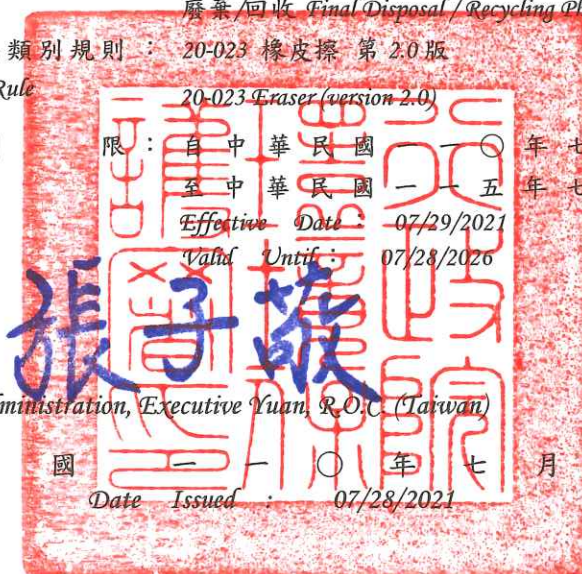 廢棄/回收 Final Disposal / Recycling Ph
類別規則 : 20-023 橡皮擦 第 2.0 版
Rule 20-023 Eraser (version 2.0)
限 : 自中華民國一一〇年七
至中華民國一一五年七
Effective Date : 07/29/2021
Valid Until : 07/28/2026
張子敬
ministration, Executive Yuan, R.O.C. (Taiwan)
國一一〇年七月
Date Issued : 07/28/2021
行政院
環境保
護署印